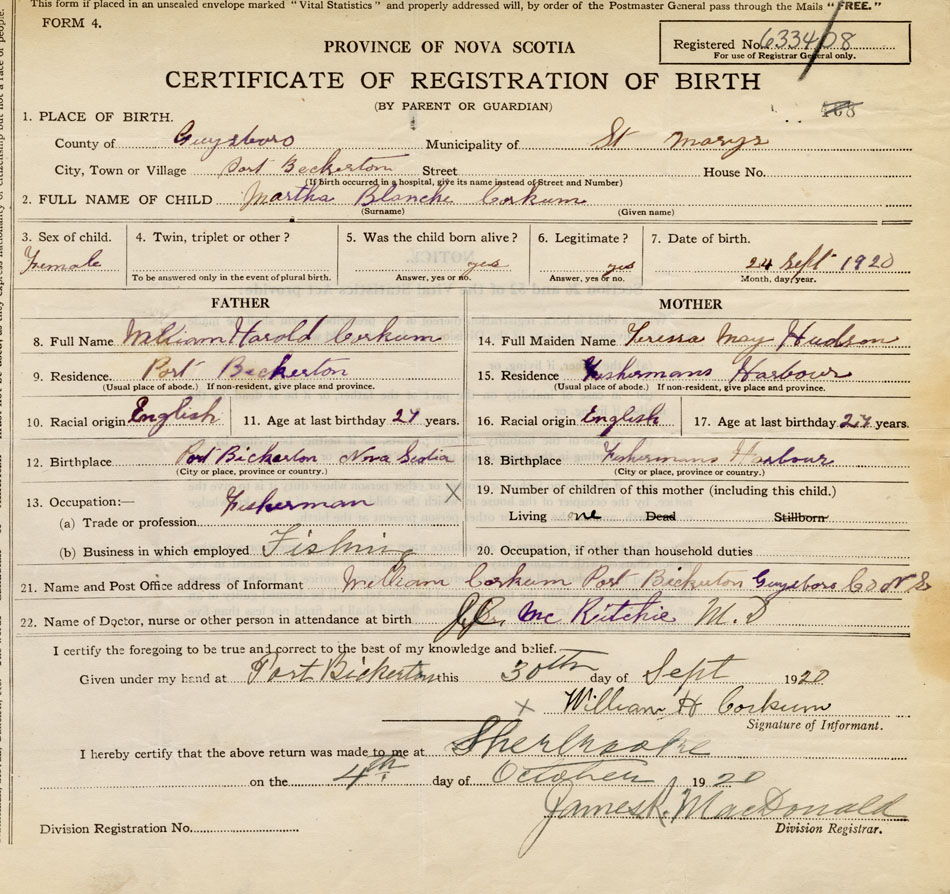 This form if placed in an unsealed envelope marked "Vital Statistics" and properly addressed will, by order of the Postmaster General pass through the Mails "FREE."
FORM 4.
Registered No. 6334/08
For use of Registrar General only.
PROVINCE OF NOVA SCOTIA
CERTIFICATE OF REGISTRATION OF BIRTH
(BY PARENT OR GUARDIAN)
1. PLACE OF BIRTH.
County of Guysboro Municipality of St Marys
City, Town or Village Port Beckerton Street House No.
(If birth occurred in a hospital, give its name instead of Street and Number)
2. FULL NAME OF CHILD Martha Blanche Corkum
(Surname) (Given name)
3. Sex of child. 4. Twin, triplet or other? 5. Was the child born alive? 6. Legitimate? 7. Date of birth.
Female yes yes 24 Sept 1920
To be answered only in the event of plural birth. Answer, yes or no. Answer, yes or no. Month, day, year.
FATHER MOTHER
8. Full Name William Harold Corkum 14. Full Maiden Name Teressa May Hudson
9. Residence. Port Beckerton 15. Residence Fishermans Harbour
(Usual place of abode.) If non-resident, give place and province. (Usual place of abode.) If non-resident, give place and province.
10. Racial origin English 11. Age at last birthday 27 years. 16. Racial origin English 17. Age at last birthday 27 years.
12. Birthplace Port Bickerton Nova Scotia 18. Birthplace Fishermans Harbour
(City or place, province or country.) (City or place, province or country.)
13. Occupation:— Fisherman X 19. Number of children of this mother (including this child.)
(a) Trade or profession Living one Dead Stillborn
(b) Business in which employed Fishing 20. Occupation, if other than household duties
21. Name and Post Office address of Informant William Corkum Port Bickerton Guysboro Co N S
22. Name of Doctor, nurse or other person in attendance at birth Mc Ritchie M.D
I certify the foregoing to be true and correct to the best of my knowledge and belief.
Given under my hand at Port Bickerton this 30th day of Sept 1920
X William H Corkum
Signature of Informant.
I hereby certify that the above return was made to me at Sherbrooke
on the 4th day of October 1920
James R. MacDonald
Division Registration No. Division Registrar.